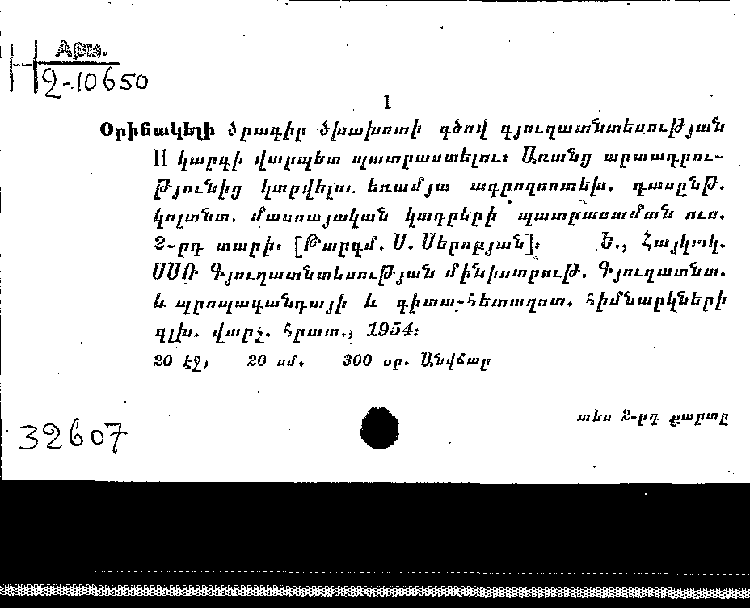 Арм.
2-10650
1
Օրինակելի ծրագիր ծխախոտի գծով գյուղատնտեսության
II կարգի վարպետ պատրաստելու: Առանց արտադրու-
թյունից կտրվելու եռամյա ագրոզոոտեխ. դասընթ.
կոլտնտ. մասսայական կադրերի պատրաստման ուս.
2-րդ տարի: [Թարգմ. Ս. Սերոբյան]: Ե., Հայկսկ.
ՍՍՌ Գյուղատնտեսության մինիստրութ. Գյուղատնտ.
և պրոպագանդայի և գիտա-հետազոտ. հիմնարկների
գլխ. վարչ. հրատ., 1954:
20 էջ, 20 սմ. 300 օր. Անվճար
տես 2-րդ քարտը
32607